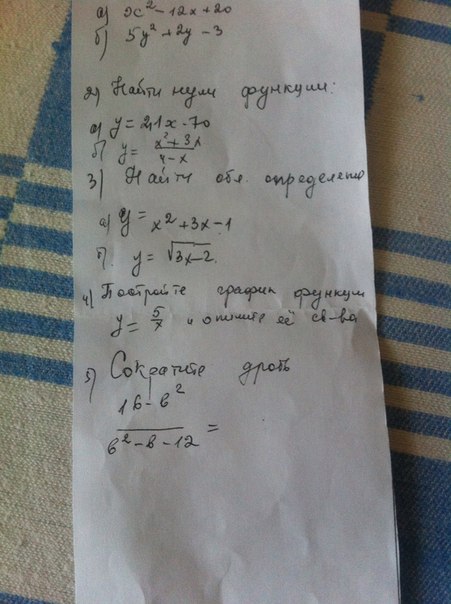 а) x² - 12x + 20
б) 5y² + 2y - 3
2) Найти нули функции:
а) y = 21x - 70
б) y = (x² + 3x)/(4 - x)
3) Найти обл. определения
а) y = x² + 3x - 1
б) y = √(3x - 2)
4) Постройте график функции
y = 5/x и опишите её св-ва
5) Сократите дробь
(16 - b²)/(b² - b - 12) =